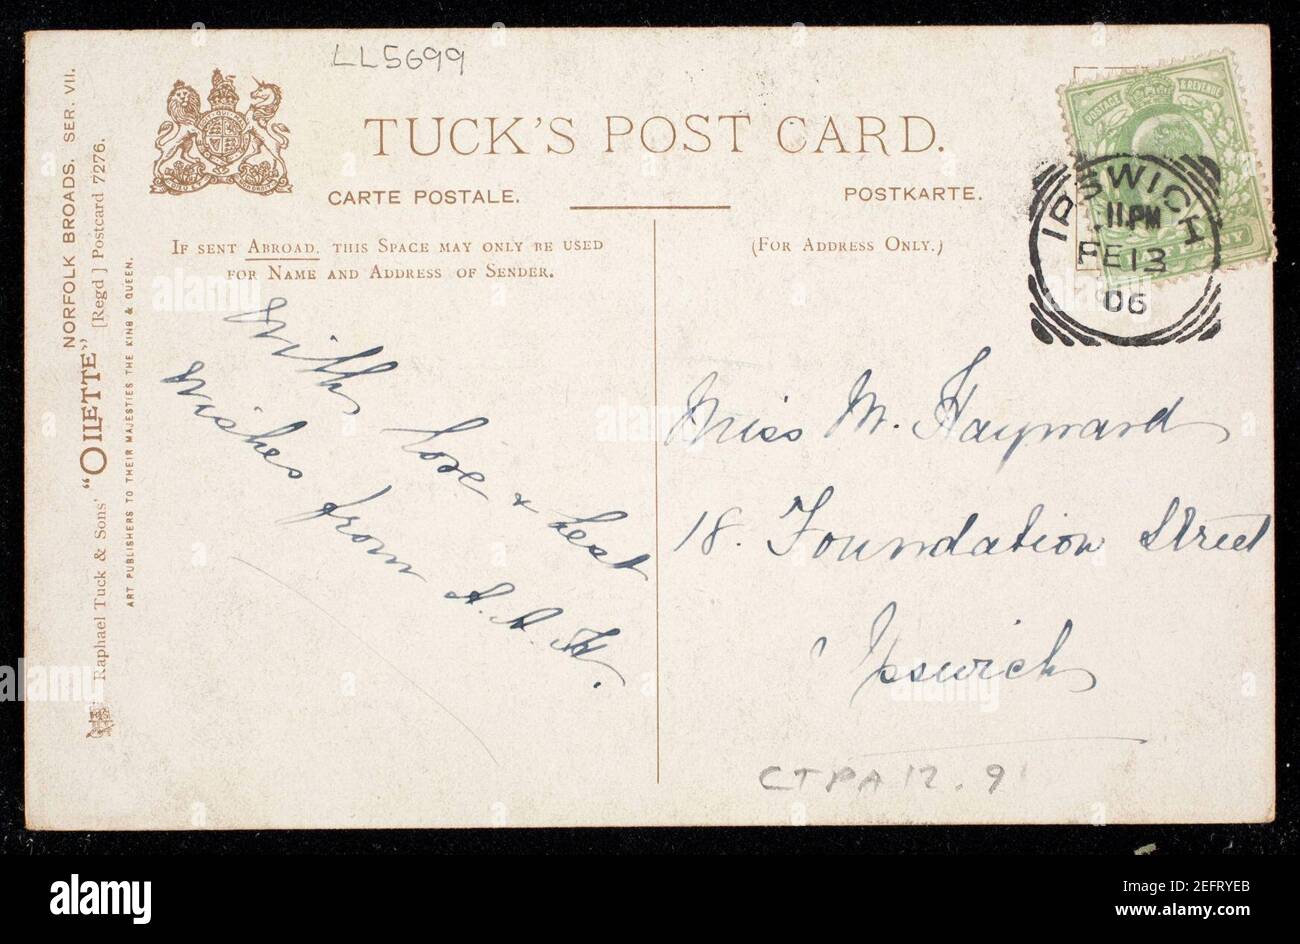 LL5699
TUCK'S POST CARD.
CARTE POSTALE.
POSTKARTE.
IF SENT ABROAD, THIS SPACE MAY ONLY BE USED
FOR NAME AND ADDRESS OF SENDER.
(FOR ADDRESS ONLY.)
POSTAGE & REVENUE
IPSWICH
11.PM
FE 13
06
With love & best
wishes from A.A.H.
Miss M. Hayward
18. Foundation Street
Ipswich
CTPA 12.91
NORFOLK BROADS. SER. VII.
Raphael Tuck & Sons' "OILETTE" [Regd.] Postcard 7276.
ART PUBLISHERS TO THEIR MAJESTIES THE KING & QUEEN.
alamy
Image ID: 2EFRYEB
www.alamy.com